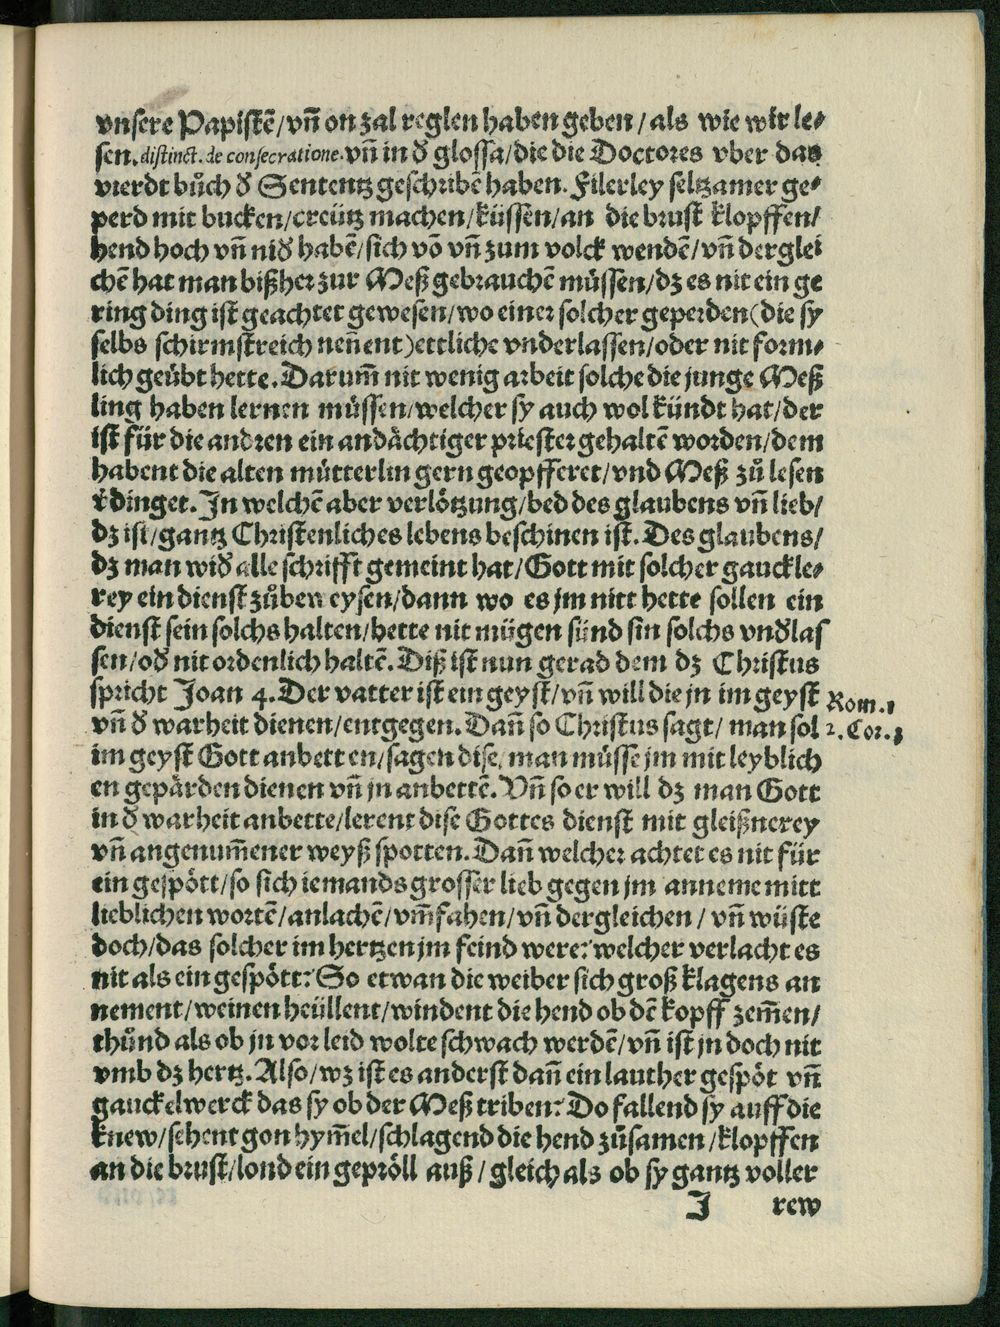 vnsere Papistē/vñ on zal reglen haben geben/als wie wir le⸗
sen. distinct. de consecratione. vñ in ď glossa/die die Doctores vber das
vierdt bůch ď Sententz geschribē haben. Filerley seltzamer ge⸗
perd mit bucken/creütz machen/küssen/an die brust klopffen/
hend hoch vñ niď habē/sich võ vñ zum volck wendē/vñ derglei
chē hat man bißher zur Meß gebrauchē müssen/dz es nit ein ge
ring ding ist geachtet gewesen/wo einer solcher geperden(die sy
selbs schirmstreich neñent)ettliche vnderlassen/oder nit form⸗
lich geübt hette. Darum̃ nit wenig arbeit solche die junge Meß
ling haben lernen müssen/welcher sy auch wol kündt hat/der
ist für die andren ein andächtiger priester gehaltē worden/dem
habent die alten mütterlin gern geopfferet/vnd Meß zů lesen
v̓dinget. In welchē aber verlötzung/bed des glaubens vñ lieb/
dz ist/gantz Christenliches lebens beschinen ist. Des glaubens/
dz man wiď alle schrifft gemeint hat/Gott mit solcher gauckle⸗
rey ein dienst zůbeweysen/dann wo es jm nitt hette sollen ein
dienst sein solchs halten/hette nit mügen sünd sin solchs vnďlas
sen/oď nit ordenlich haltē. Diß ist nun gerad dem dz Christus
spricht Joan 4. Der vatter ist ein geyst/vñ will die jn im geyst
Rom. 1
vñ ď warheit dienen/entgegen. Dañ so Christus sagt/ man sol
2. Cor. 3
im geyst Gott anbetten/sagen dise/man müsse jm mit leyblich
en gepärden dienen vñ jn anbettē. Vñ so er will dz man Gott
in ď warheit anbette/lerent dise Gottes dienst mit gleißnerey
vñ angenum̃ener weyß spotten. Dañ welcher achtet es nit für
ein gespött/so sich iemands grosser lieb gegen jm anneme mitt
lieblichen wortē/anlachē/vm̃fahen/vñ dergleichen/vñ wüste
doch/das solcher im hertzen jm feind were: welcher verlacht es
nit als ein gespött: So etwan die weiber sich groß klagens an
nement/weinen heüllent/windent die hend ob dē kopff zem̃en/
thůnd als ob jn vor leid wolte schwach werdē/vñ ist jn doch nit
vmb dz hertz. Also/wz ist es anderst dañ ein lauther gespöt vñ
gauckelwerck das sy ob der Meß triben: Do fallend sy auff die
knew/sehent gon hym̃el/schlagend die hend zůsamen/klopffen
an die brust/lond ein gepröll auß/gleich als ob sy gantz voller
J rew